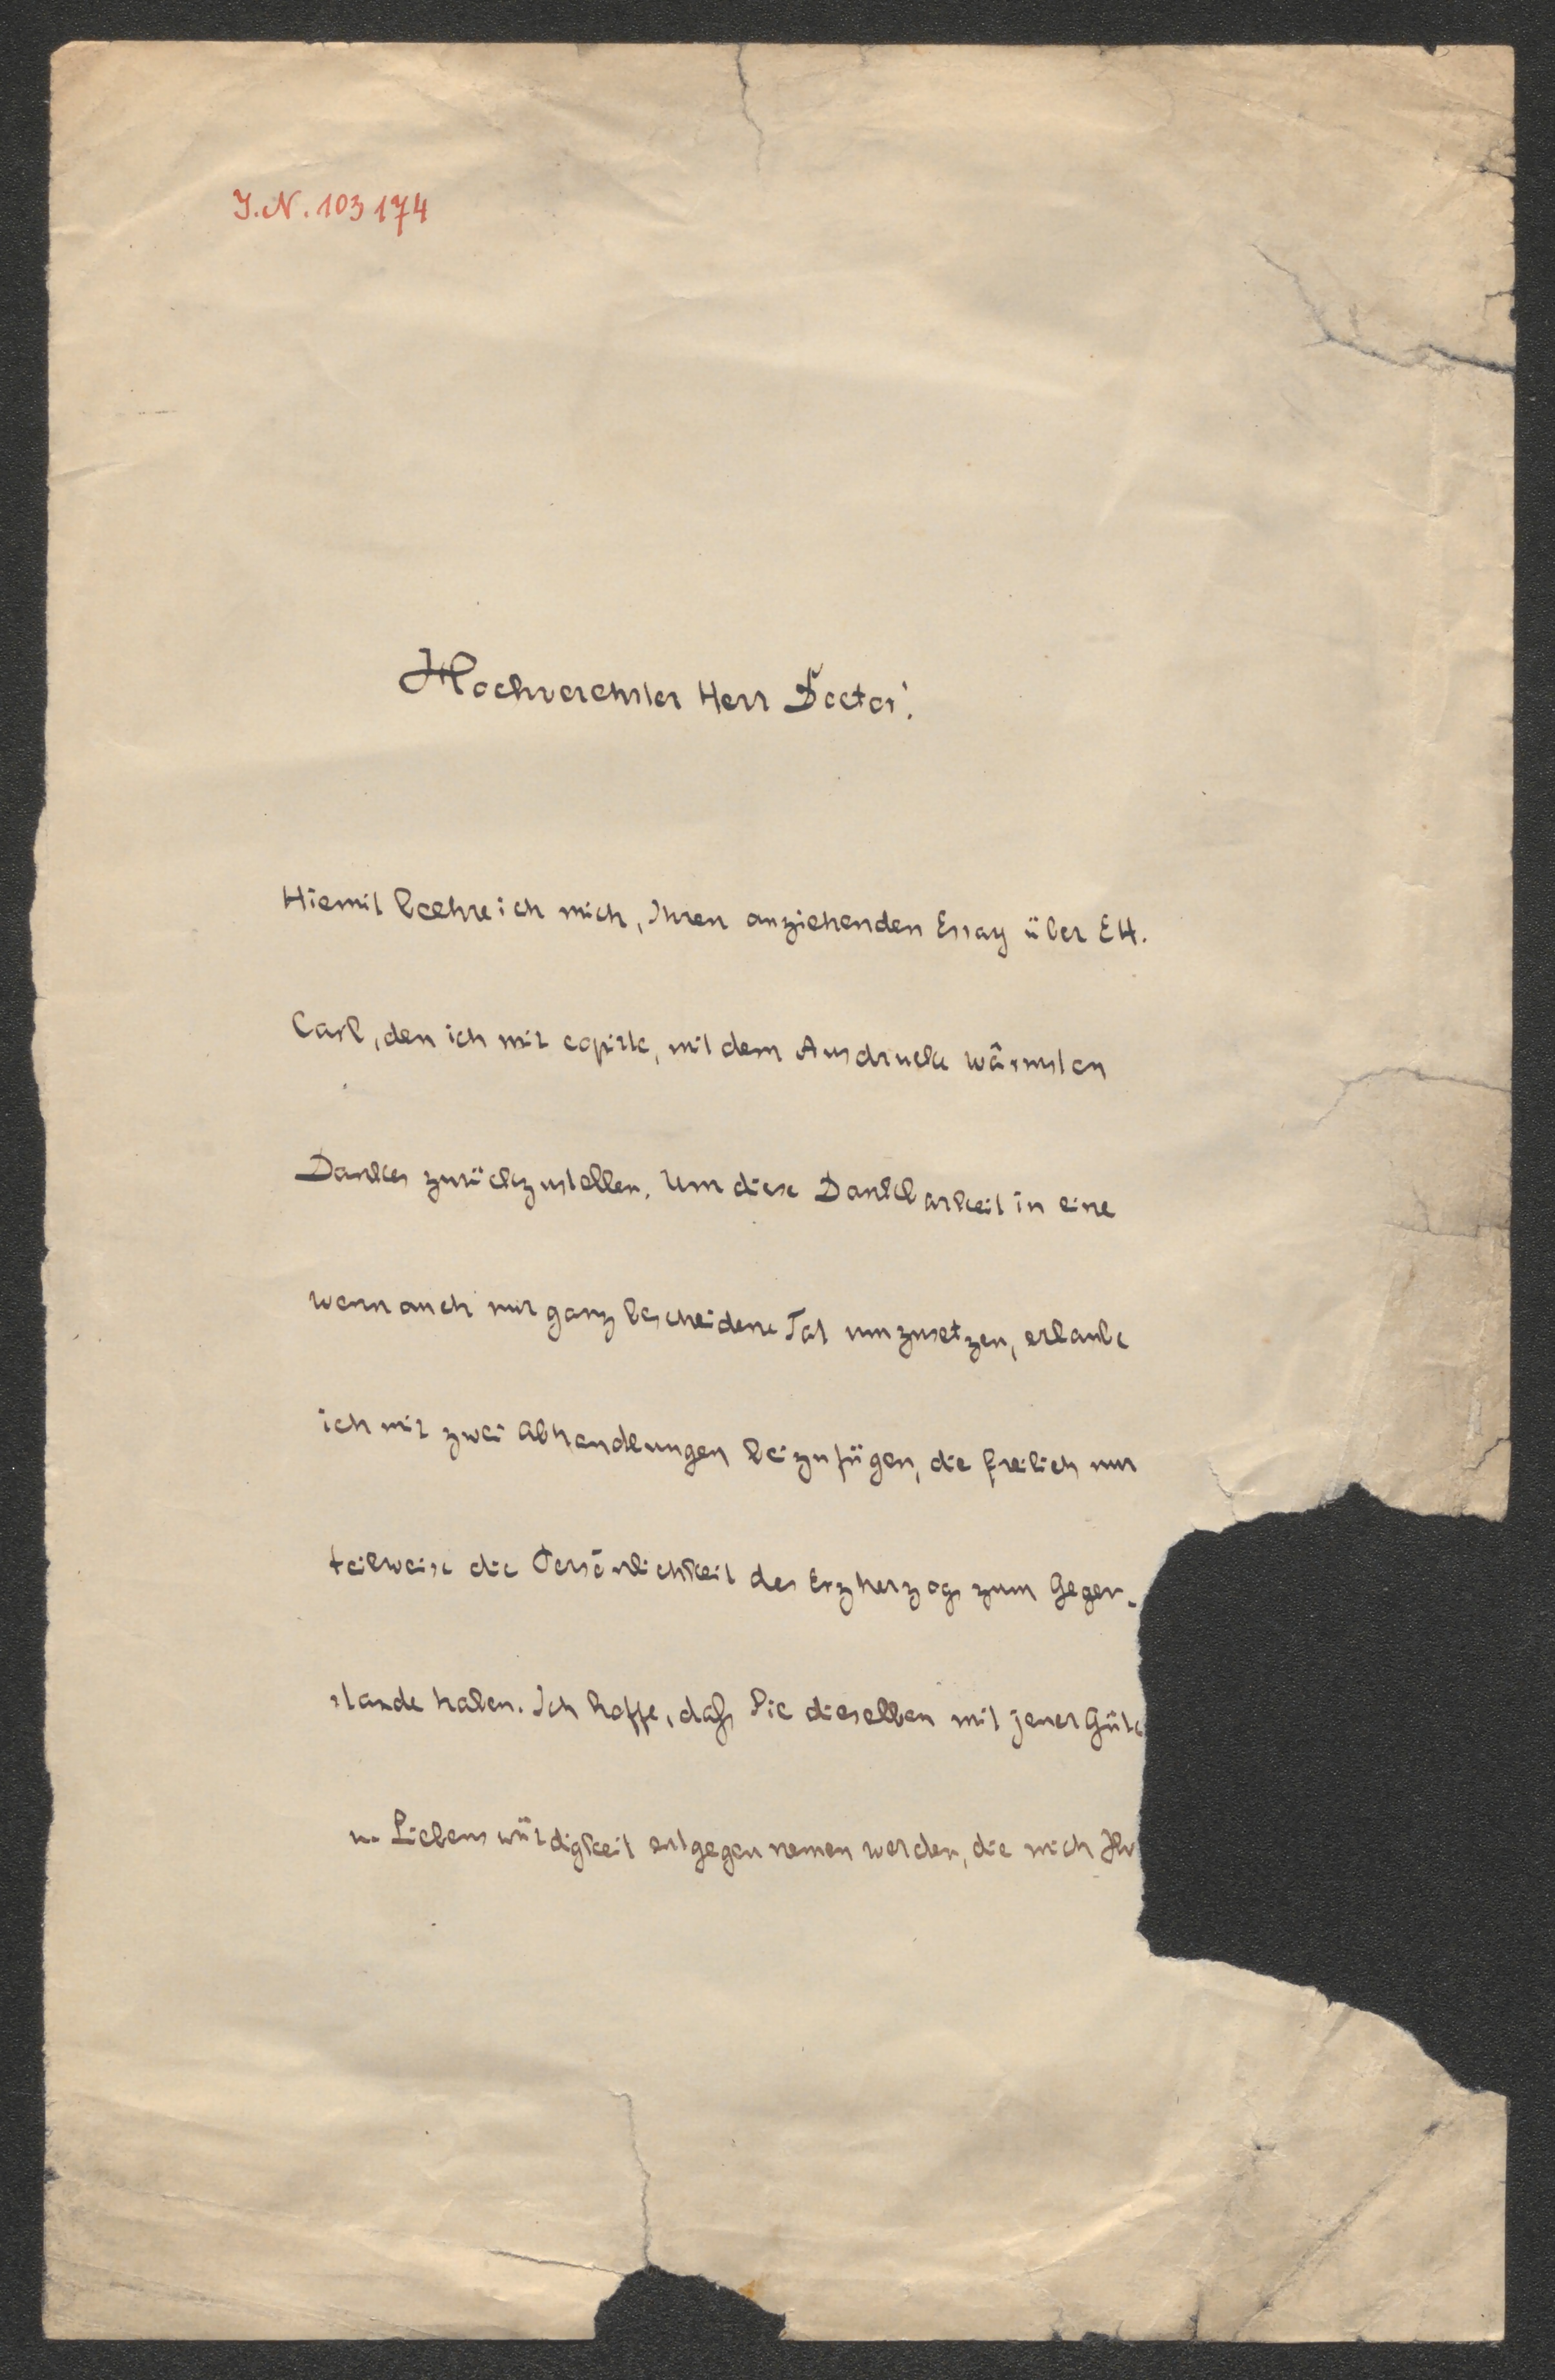 J.N. 103174
Hochverehrter Herr Doctor!
Hiemit beehre ich mich, Ihren anziehenden Essay über EH.
Carl, den ich mir copirte, mit dem Ausdrucke wärmsten
Dankes zurückzustellen. Um diese Dankbarkeit in eine
wenn auch nur ganz bescheidene Tat umzusetzen, erlaube
ich mir zwei Abhandlungen beizufügen, die freilich nur
teilweise die Persönlichkeit des Erzherzogs zum Gegen-
stande haben. Ich hoffe, daß Sie dieselben mit jener Güte
u. Liebenswürdigkeit entgegen nemen werden, die mich Ihr